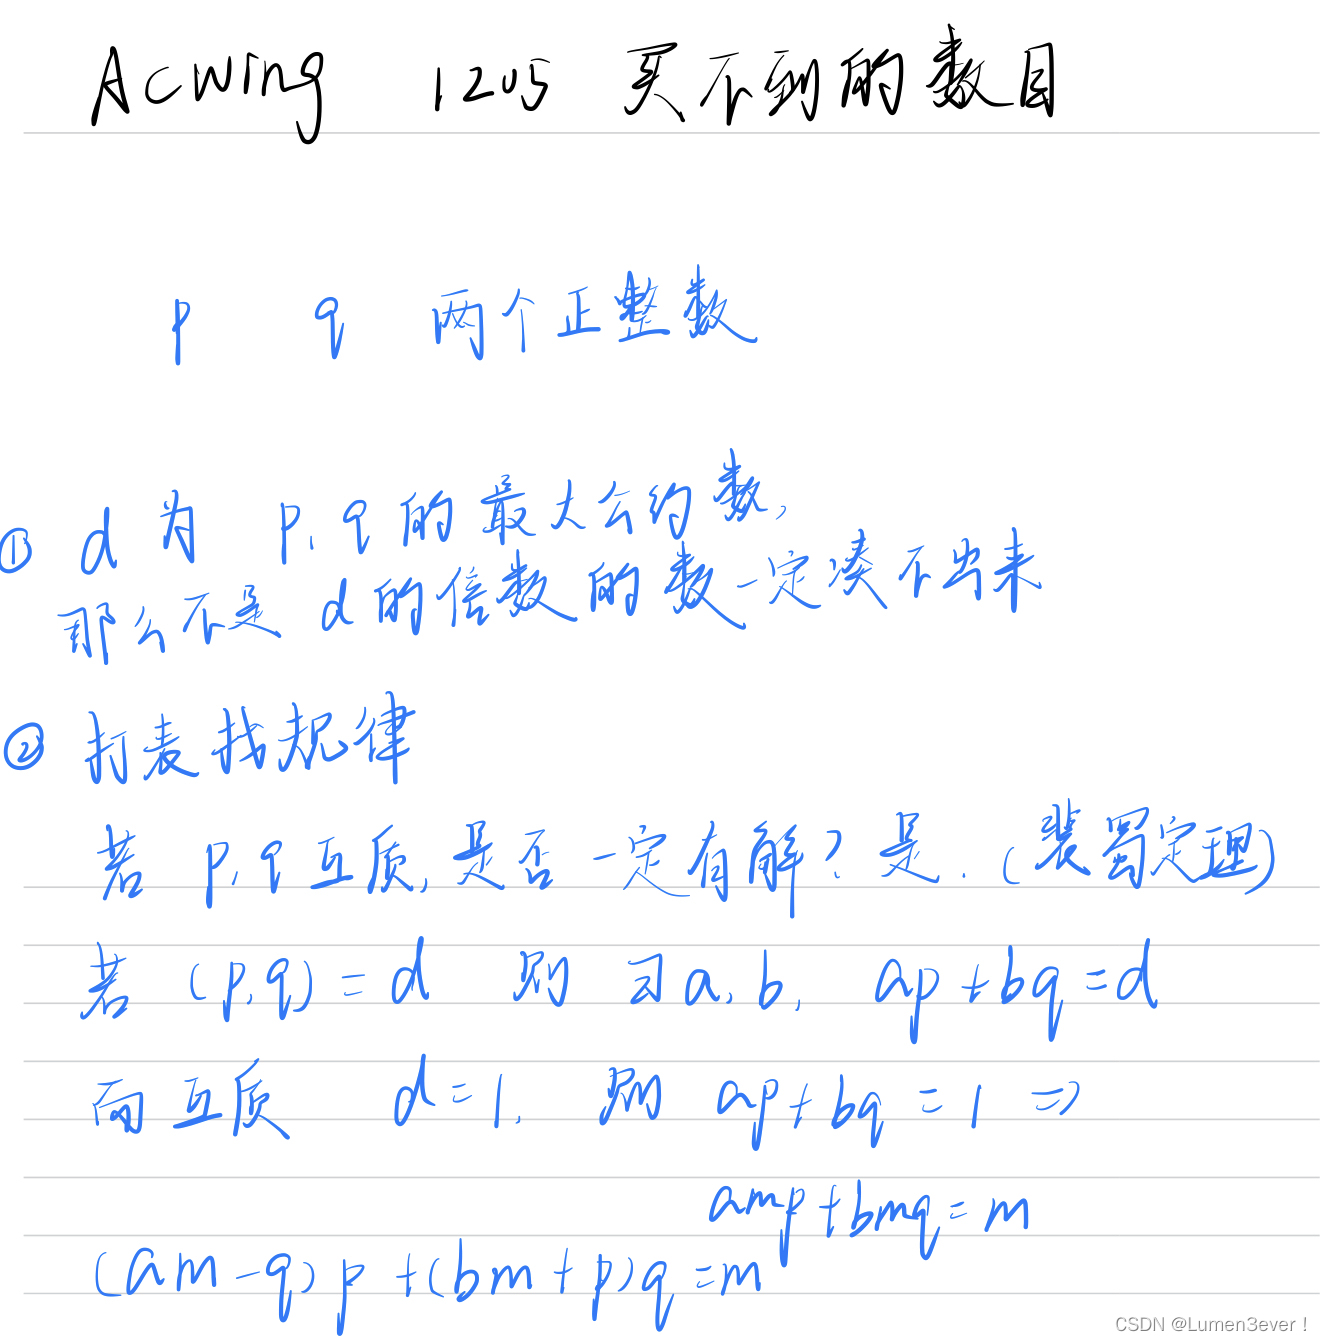 AcWing 1205 买不到的数目
p q 两个正整数
① d 为 p, q 的最大公约数,
那么不是 d 的倍数的数一定凑不出来
② 打表找规律
若 p, q 互质, 是否一定有解? 是. (裴蜀定理)
若 (p, q) = d 则 ∃ a, b, ap + bq = d
而互质 d = 1, 则 ap + bq = 1 ⇒
amp + bmq = m
(am - q) p + (bm + p) q = m
CSDN @Lumen3ever！